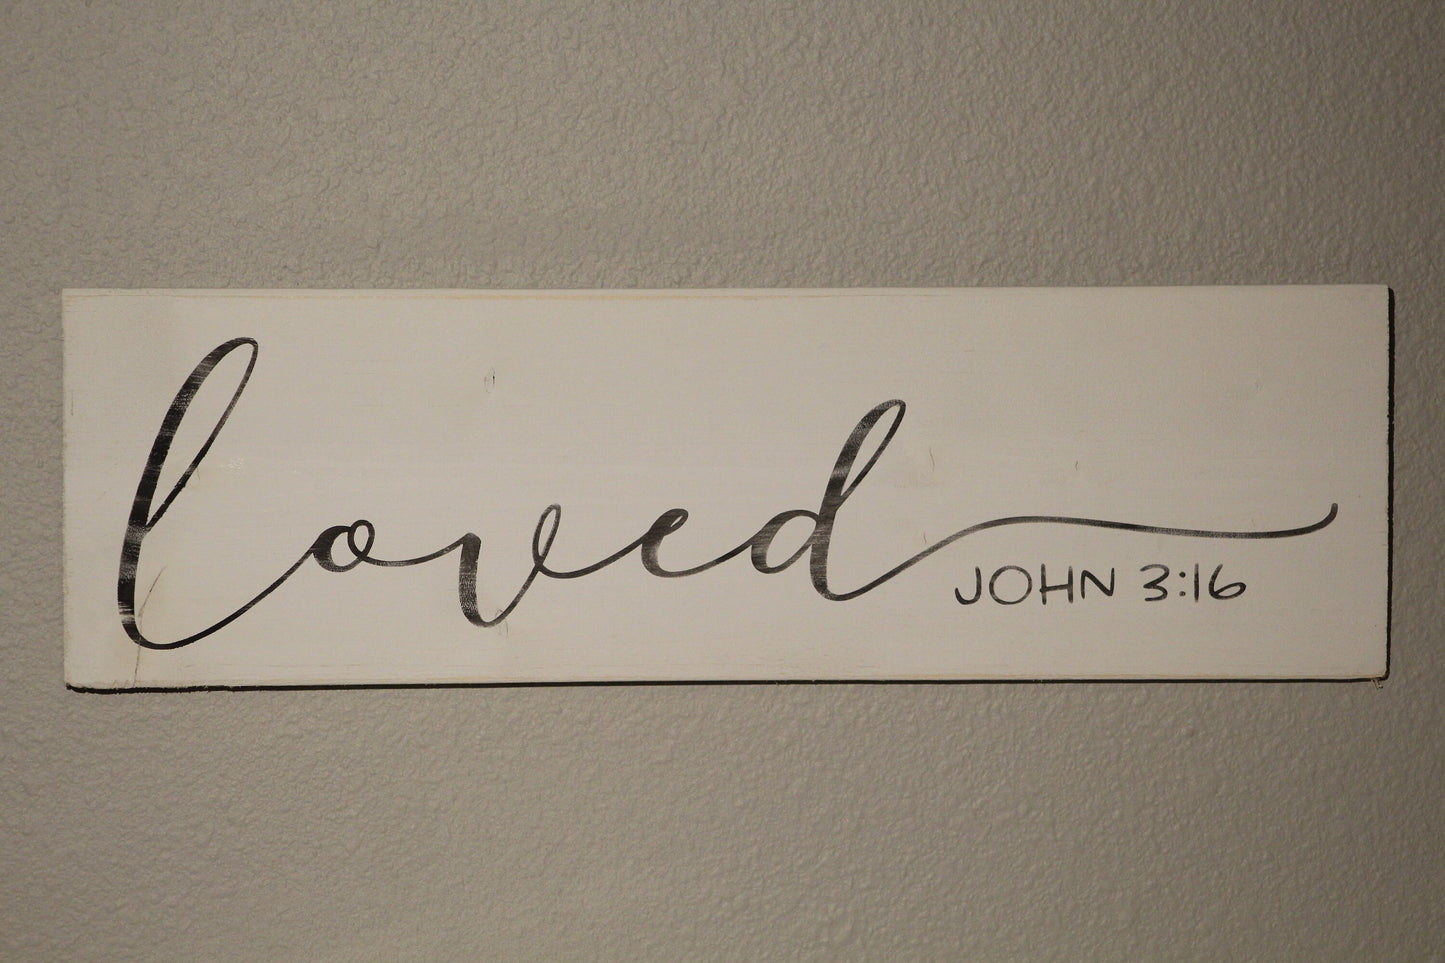 loved
JOHN 3:16